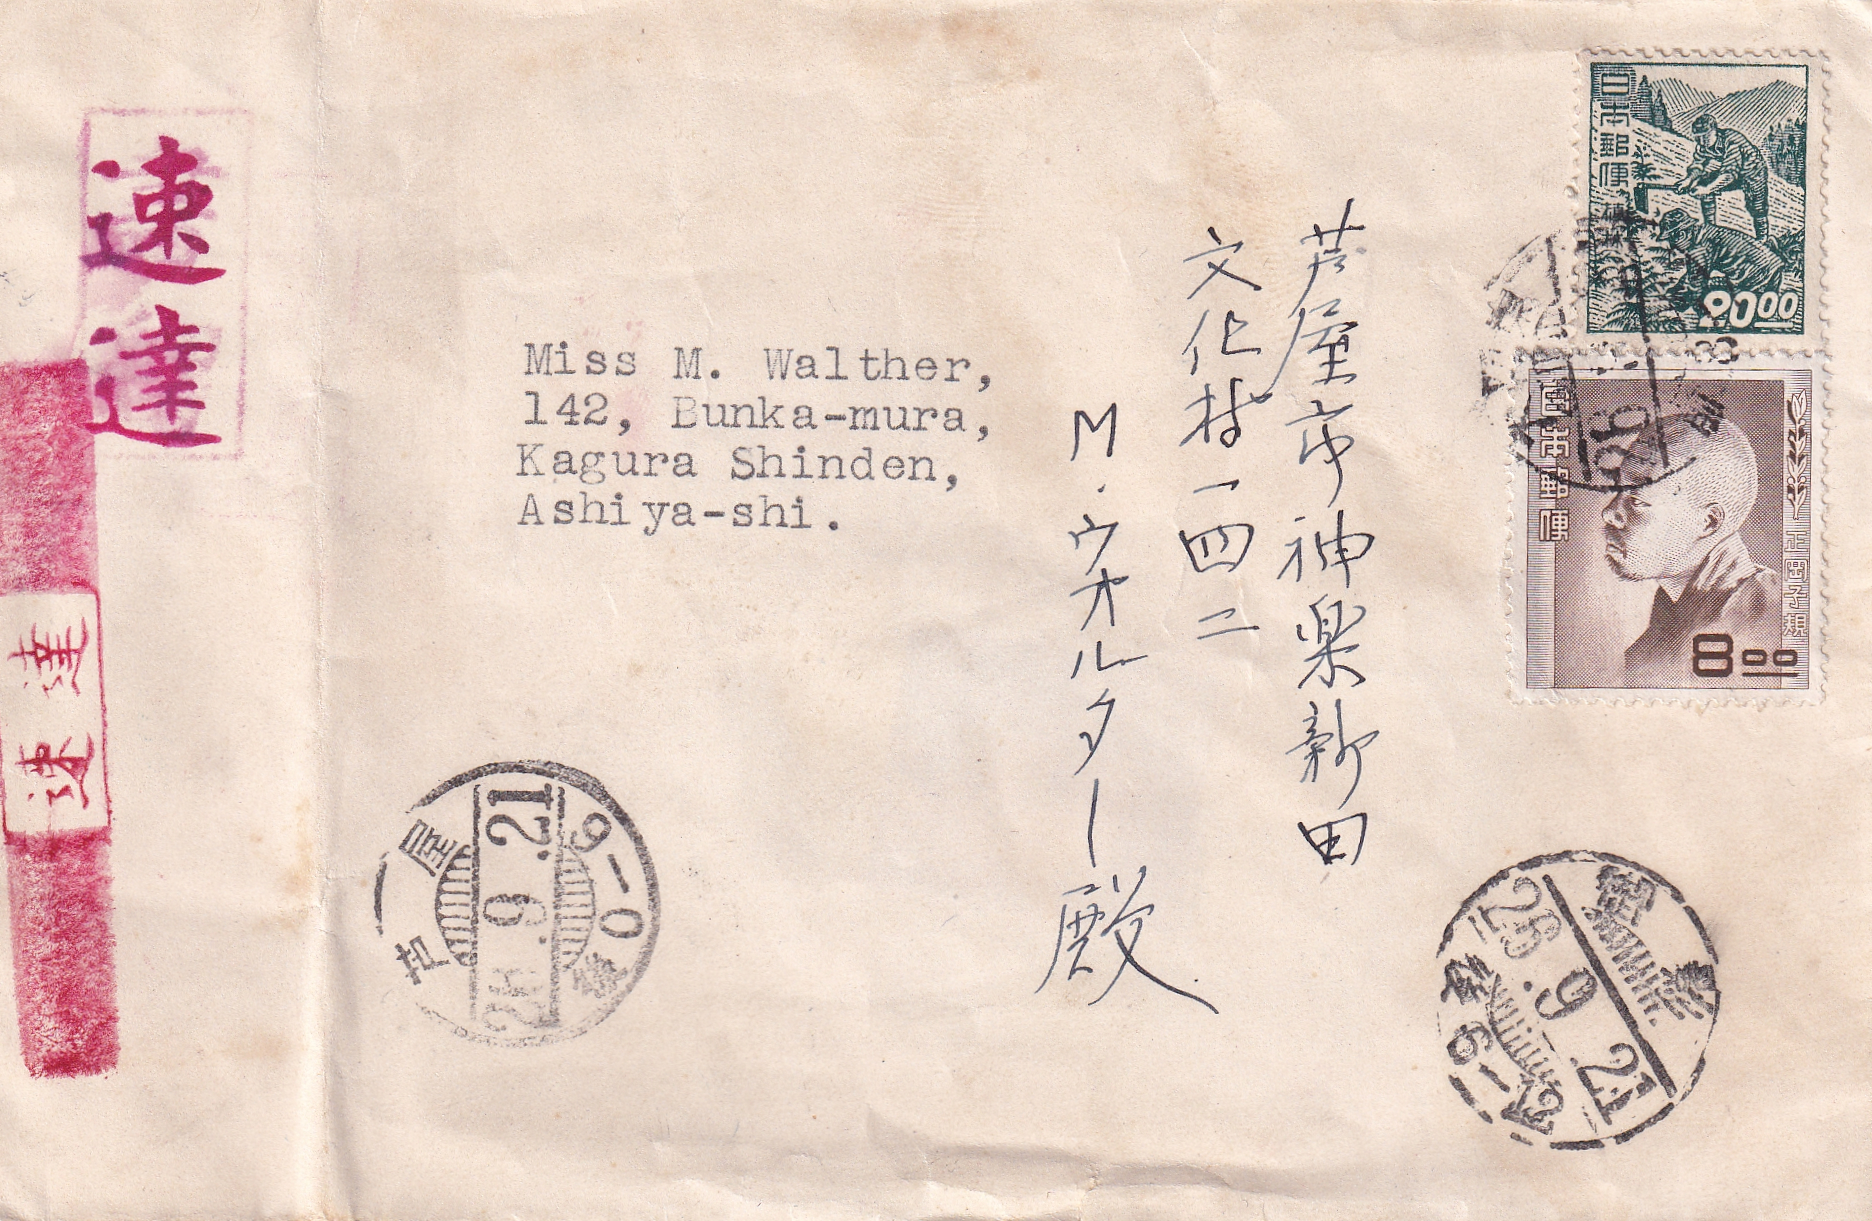 速達
速達
Miss M. Walther,
142, Bunka-mura,
Kagura Shinden,
Ashiya-shi.
芦屋市神楽新田
文化村一四二
M.ウオルター殿
日本郵便
20.00
日本郵便
正岡子規
8.00
26
26.9.21
9-0
26.9.21